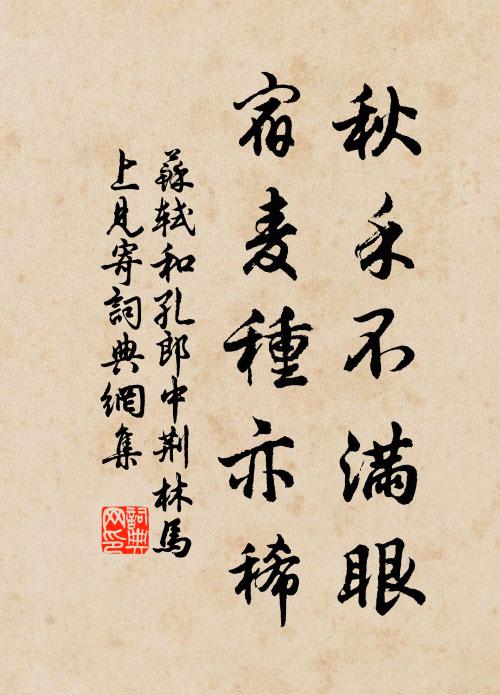 秋禾不滿眼
宿麦種亦稀
蘇軾和孔郎中荆林馬
上見寄詞典網集
詞典
网印